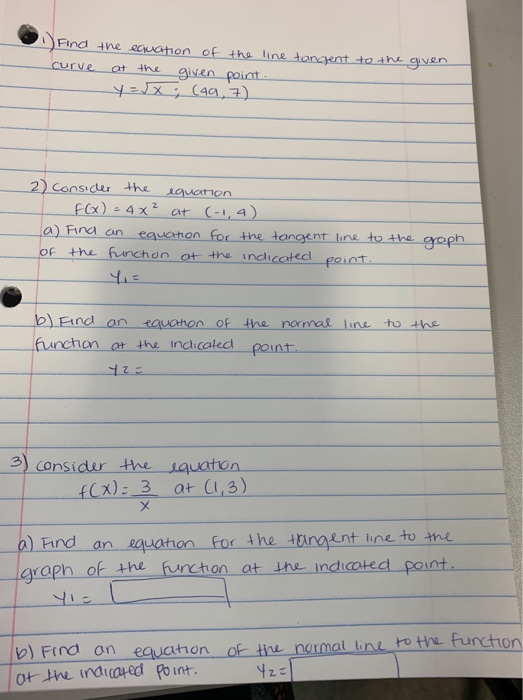 1) Find the equation of the line tangent to the given
curve at the given point.
y = √x ; (49, 7)
2) Consider the equation
f(x) = 4x² at (-1, 4)
a) Find an equation for the tangent line to the graph
of the function at the indicated point.
y₁ =
b) Find an equation of the normal line to the
function at the indicated point.
y2 =
3) consider the equation
f(x) = 3/x at (1, 3)
a) Find an equation for the tangent line to the
graph of the function at the indicated point.
y1 =
b) Find an equation of the normal line to the function
at the indicated point. y2 =